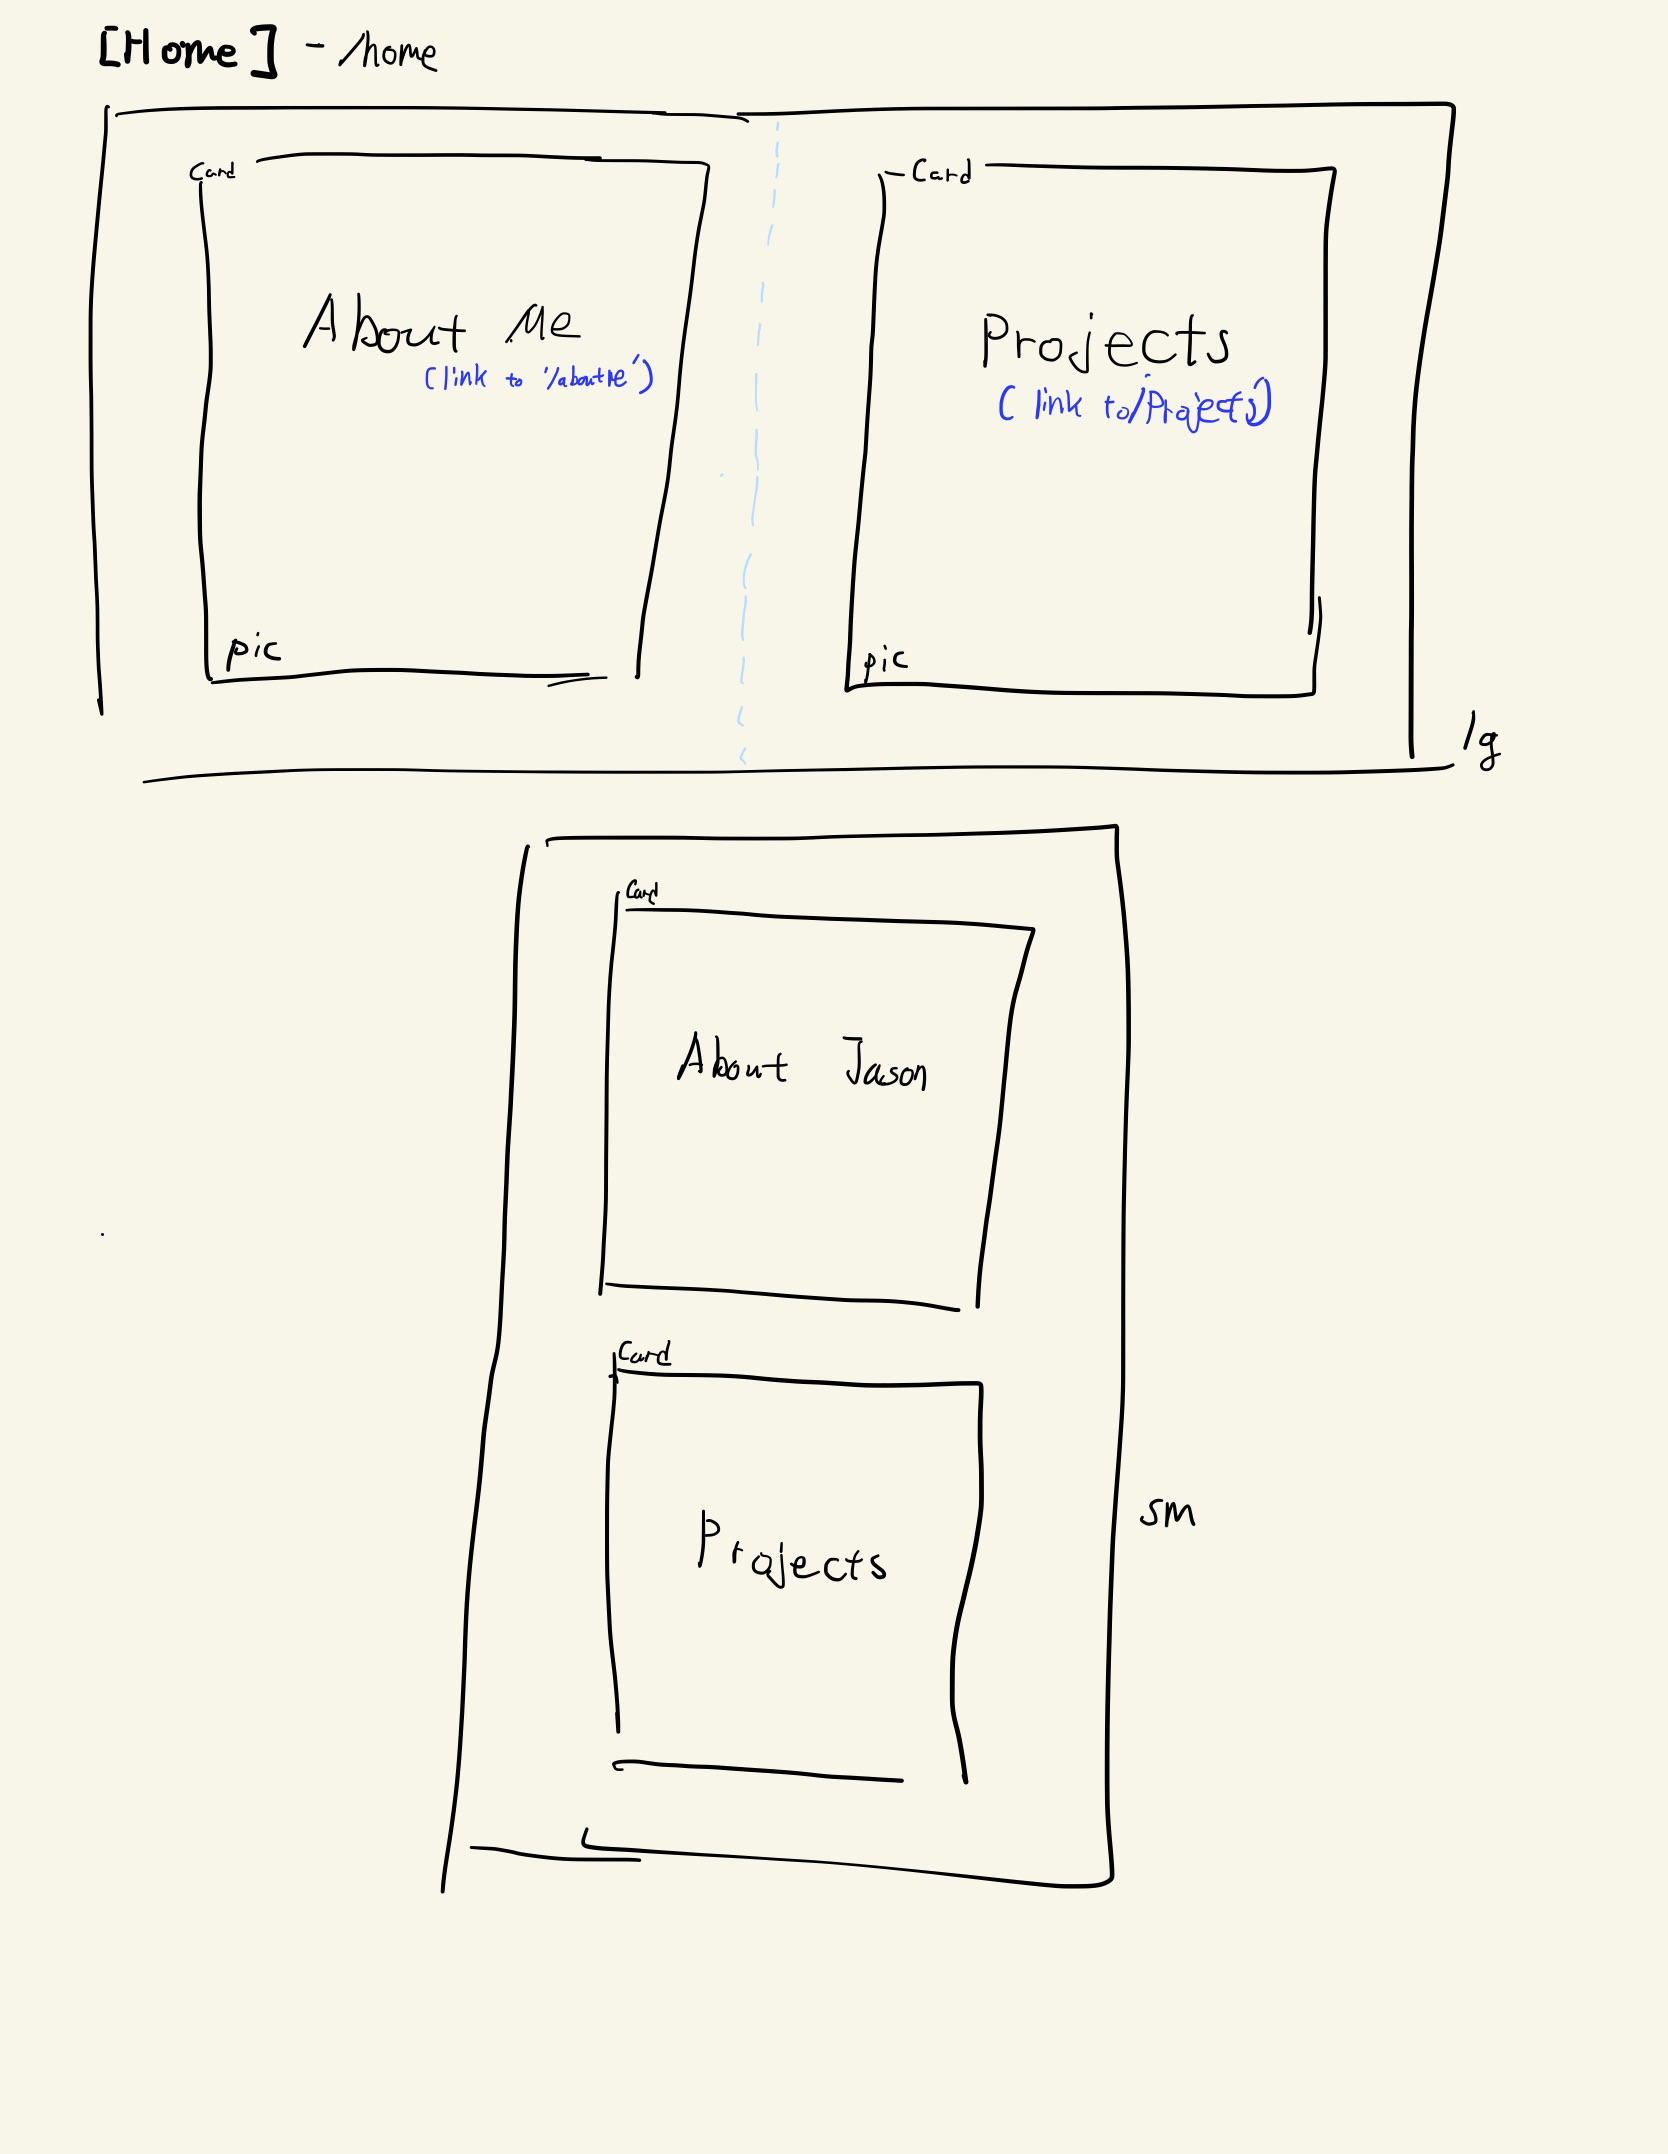 [Home] - /home
Card
Card
About Me
(link to '/aboutme')
Projects
(link to/Projects)
pic
pic
lg
Card
About Jason
Card
Projects
sm